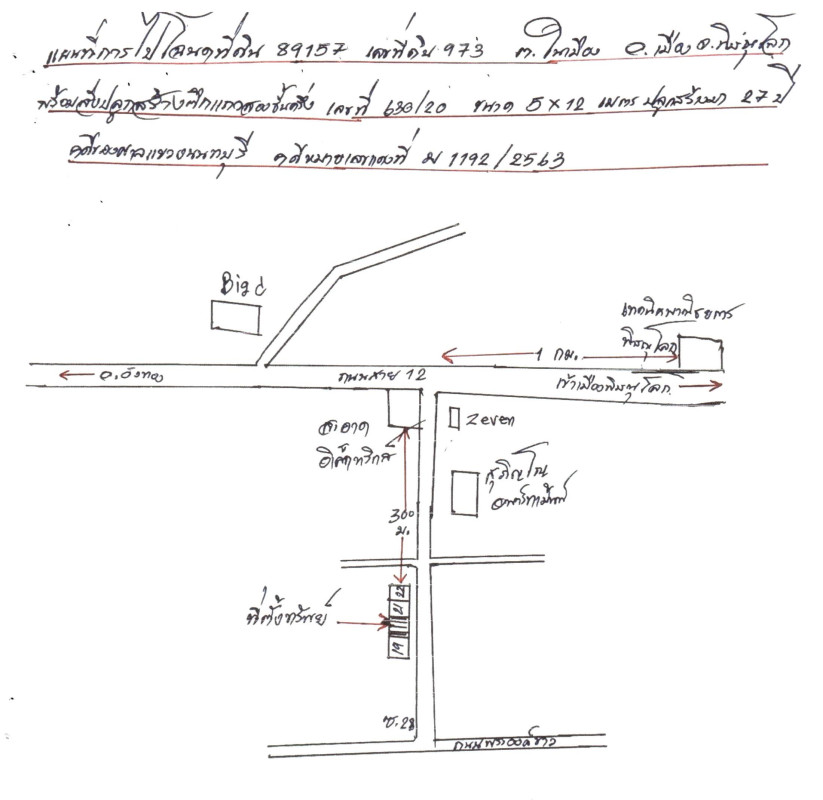 แผนที่การไปโฉนดที่ดิน 89157 เลขที่ดิน 973 ต.ในเมือง อ.เมือง จ.พิษณุโลก
พร้อมสิ่งปลูกสร้างตึกแถวสองชั้นครึ่ง เลขที่ 630/20 ขนาด 5 x 12 เมตร ปลูกสร้างมา 27 ปี
คดีของศาลแขวงนนทบุรี คดีหมายเลขแดงที่ ม 1192/2563
Big c
เทคนิคพาณิชยการ
พิษณุโลก
1 กม.
อ.วังทอง
ถนนสาย 12
เข้าเมืองพิษณุโลก
สะอาด
อิเล็กทริกส์
7even
สุภิญโญ
อพาร์ทเม้นท์
300
ม.
22
21
19
ที่ตั้งทรัพย์
ซ.28
ถนนพระองค์ขาว